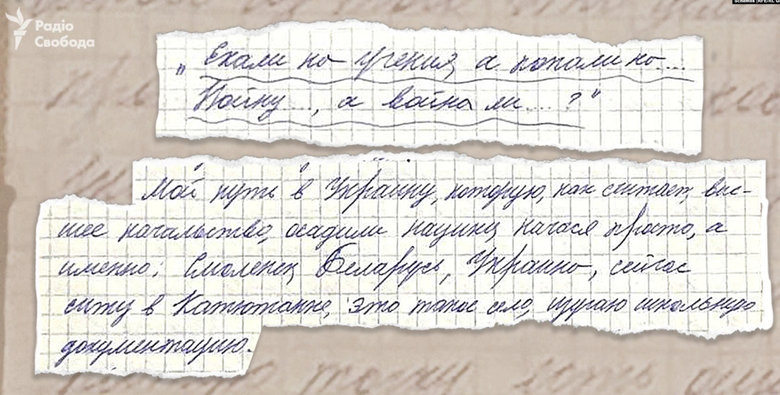 Радіо
Свобода
„Ехали на учения, а попали на...
Войну..., а война ли...?"
Мой путь в Украину, которую, как считает, выс-
шее начальство, осадили нацики начася просто, а
именно: Смоленск, Беларусь, Украина, сейчас
сижу в Катютанке, это такое село, изучаю школьную
документацию.